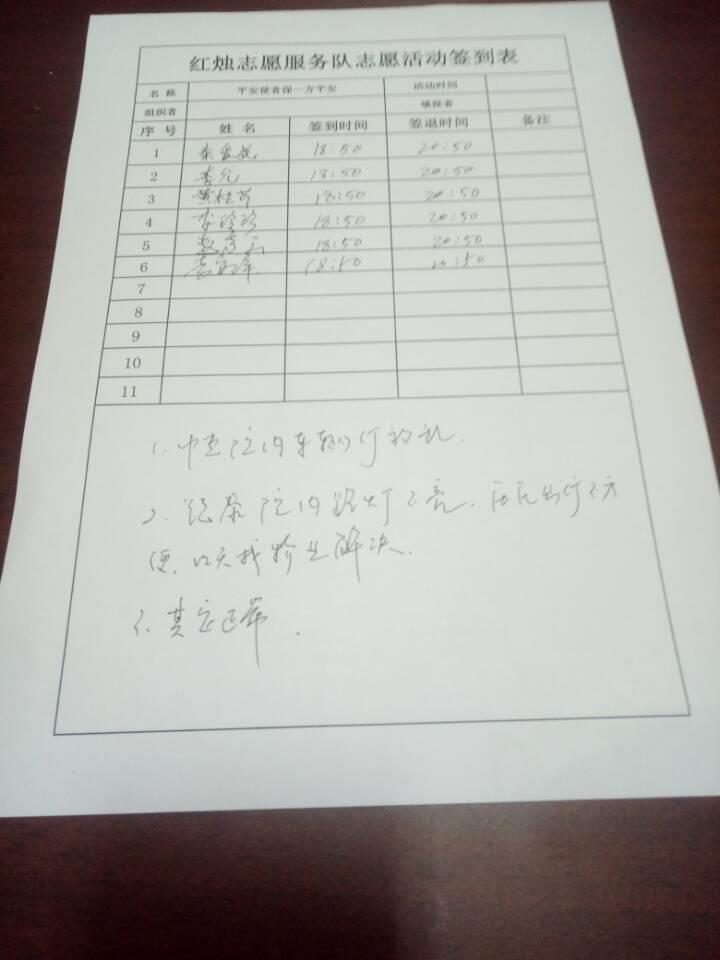 红烛志愿服务队志愿活动签到表
名称 平安使者保一方平安 活动时间
组织者 填报者
序号 姓名 签到时间 签退时间 备注
1 18:50 20:50
2 李允 18:50 20:50
3 黄桂芹 18:50 20:50
4 李玲玲 18:50 20:50
5 18:50 20:50
6 18:50 20:50
7
8
9
10
11
1. 院内车辆
2. 院内路灯不亮, 居民出行不方
便, 明天找物业解决.
3. 其它正常.